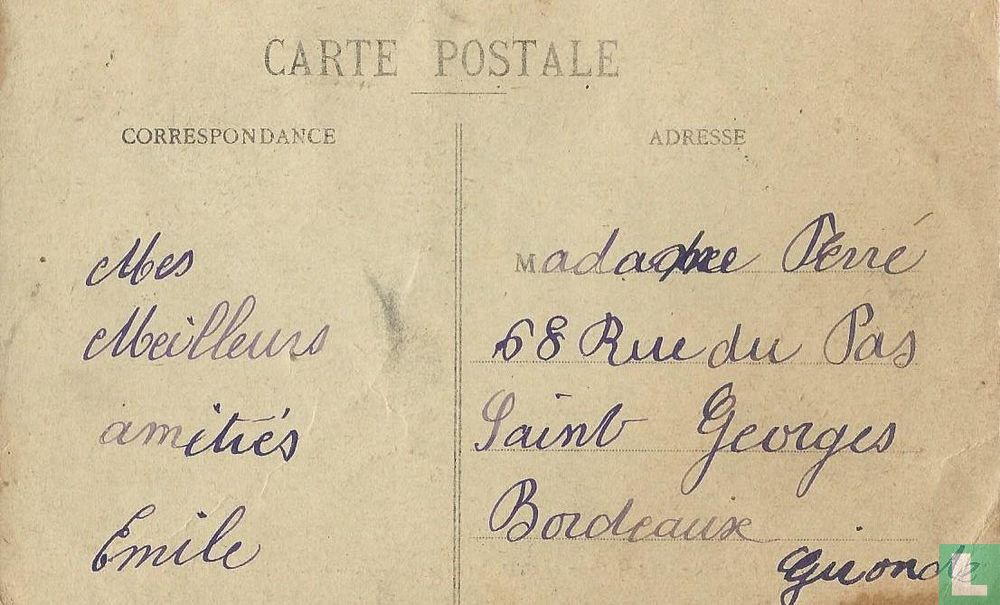 CARTE POSTALE
CORRESPONDANCE
ADRESSE
Mes
Meilleurs
amitiés
Emile
Madame Perré
68 Rue du Pas
Saint Georges
Bordeaux
Gironde
L